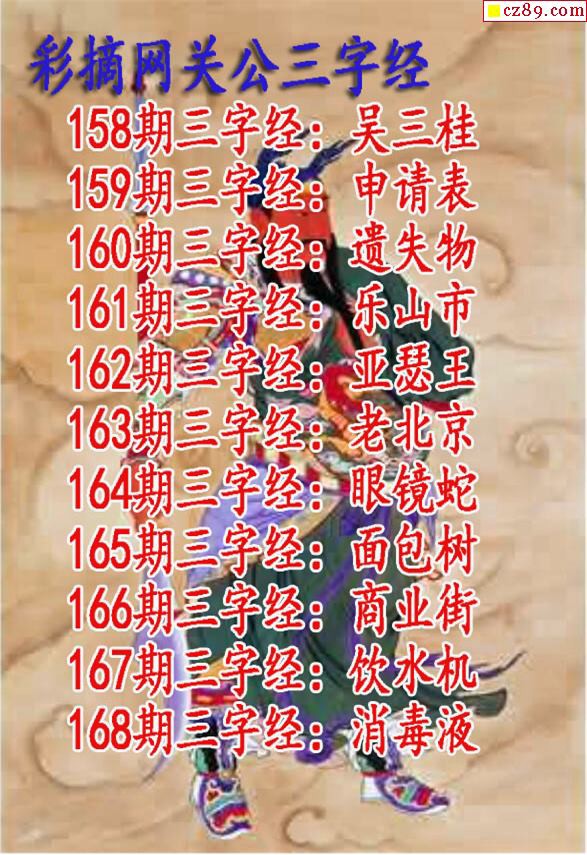 cz89.com
彩摘网关公三字经
158期三字经：吴三桂
159期三字经：申请表
160期三字经：遗失物
161期三字经：乐山市
162期三字经：亚瑟王
163期三字经：老北京
164期三字经：眼镜蛇
165期三字经：面包树
166期三字经：商业街
167期三字经：饮水机
168期三字经：消毒液